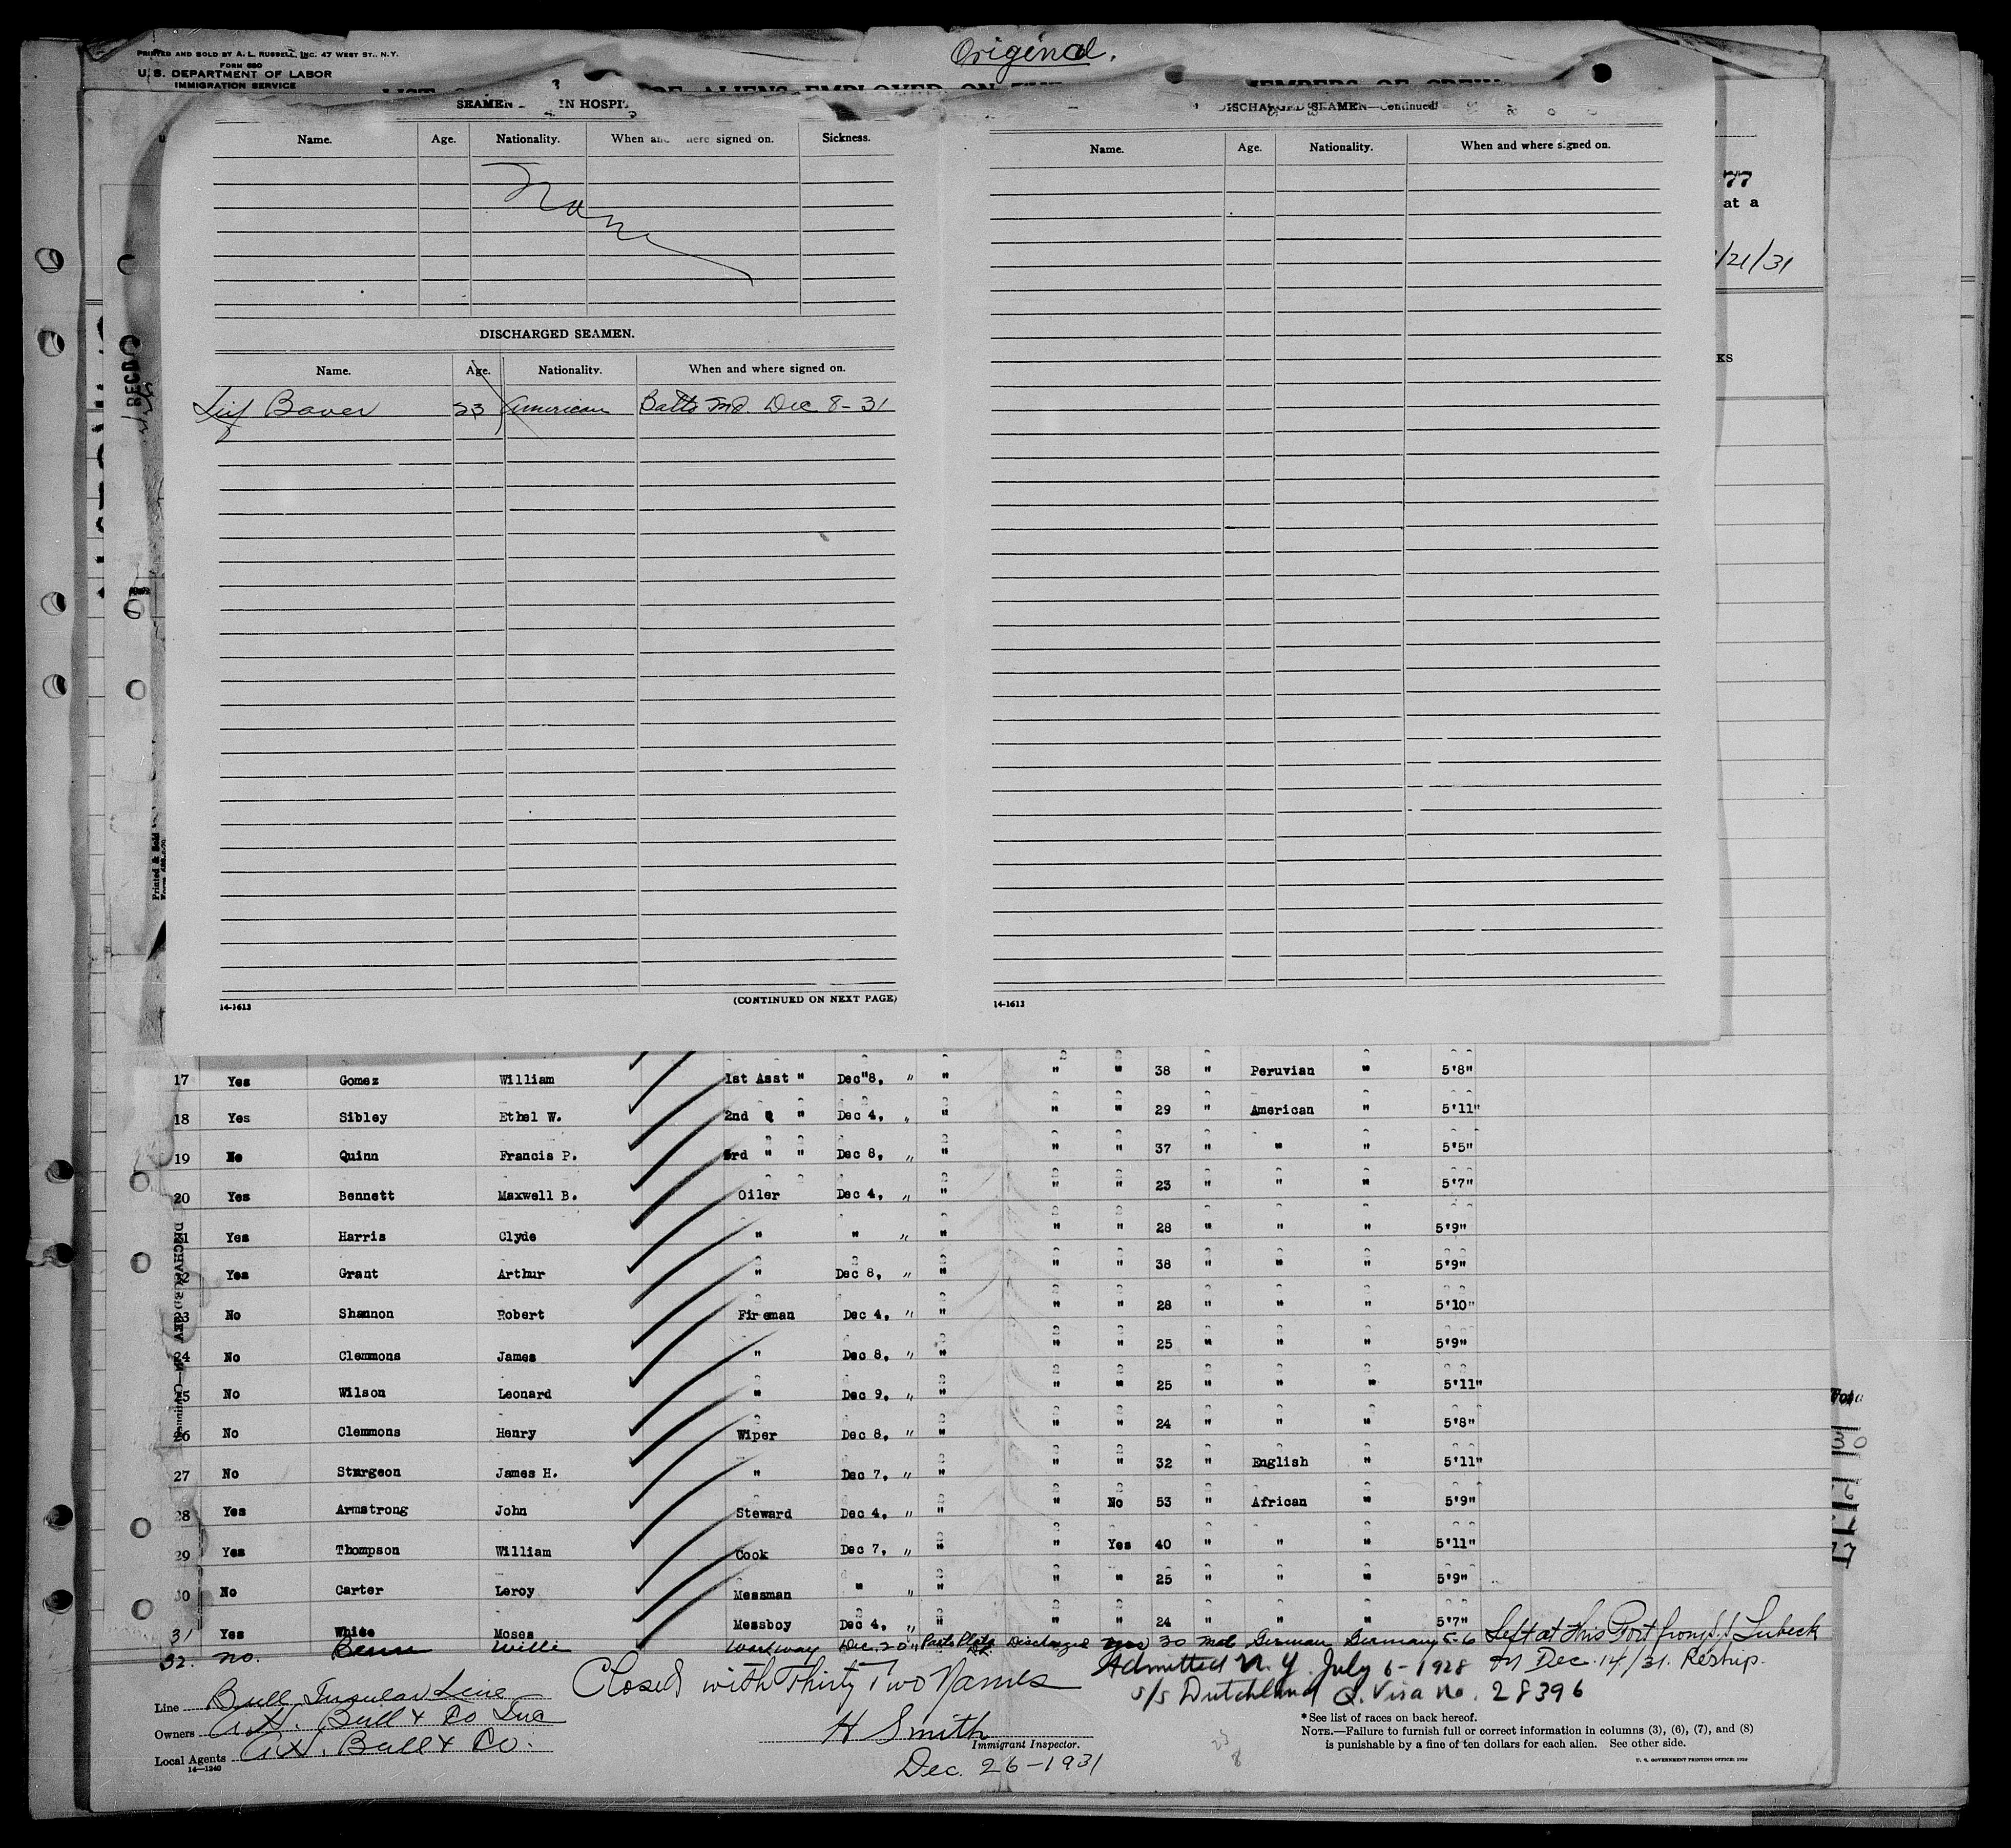 Original.
PRINTED AND SOLD BY A. L. RUSSELL, INC. 47 WEST ST., N.Y.
FORM 680
U. S. DEPARTMENT OF LABOR
IMMIGRATION SERVICE
ALIENS EMPLOYED ON THE MEMBERS OF CREW
SEAMEN IN HOSPI
Name. Age. Nationality. When and where signed on. Sickness.
None
DISCHARGED SEAMEN.
Name. Age. Nationality. When and where signed on.
Bauer 23 American Balto Md. Dec 8-31
(CONTINUED ON NEXT PAGE)
14-1613
DISCHARGED SEAMEN—Continued
Name. Age. Nationality. When and where signed on.
14-1613
77
at a
/21/31
KS
RECD
17 Yes Gomez William 1st Asst " Dec 8, " " " " 38 " Peruvian " 5'8"
18 Yes Sibley Ethel W. 2nd " " Dec 4, " " " " 29 " American " 5'11"
19 No Quinn Francis P. 3rd " " Dec 8, " " " " 37 " " " 5'5"
20 Yes Bennett Maxwell B. Oiler Dec 4, " " " " 23 " " " 5'7"
21 Yes Harris Clyde " " " " " " 28 " " " 5'9"
2 Yes Grant Arthur " Dec 8, " " " " 38 " " " 5'9"
3 No Shannon Robert Fireman Dec 4, " " " " 28 " " " 5'10"
24 No Clemmons James " Dec 8, " " " " 25 " " " 5'9"
25 No Wilson Leonard " Dec 9, " " " " 25 " " " 5'11"
26 No Clemmons Henry Wiper Dec 8, " " " " 24 " " " 5'8"
27 No Sturgeon James H. " Dec 7, " " " " 32 " English " 5'11"
28 Yes Armstrong John Steward Dec 4, " " " No 53 " African " 5'9"
29 Yes Thompson William Cook Dec 7, " " " Yes 40 " " " 5'11"
30 No Carter Leroy Messman " " " " " 25 " " " 5'9"
31 Yes White Moses Messboy Dec 4, " " " " 24 " " " 5'7"
32. no. Willi Workway Dec. 20" Discharged 30 German Germany 5-6 Left at this Port from S.S Lubeck
Admitted N.Y. July 6-1928 on Dec. 14/31. Reship.
S/S Dutchland Q. Visa No. 28396
Closed with Thirty Two Names
Line Bull Insular Line
Owners A.H. Bull & Co Inc
Local Agents A.H. Bull & Co.
14—1240
H Smith
Immigrant Inspector.
Dec. 26-1931
* See list of races on back hereof.
NOTE.—Failure to furnish full or correct information in columns (3), (6), (7), and (8)
is punishable by a fine of ten dollars for each alien. See other side.